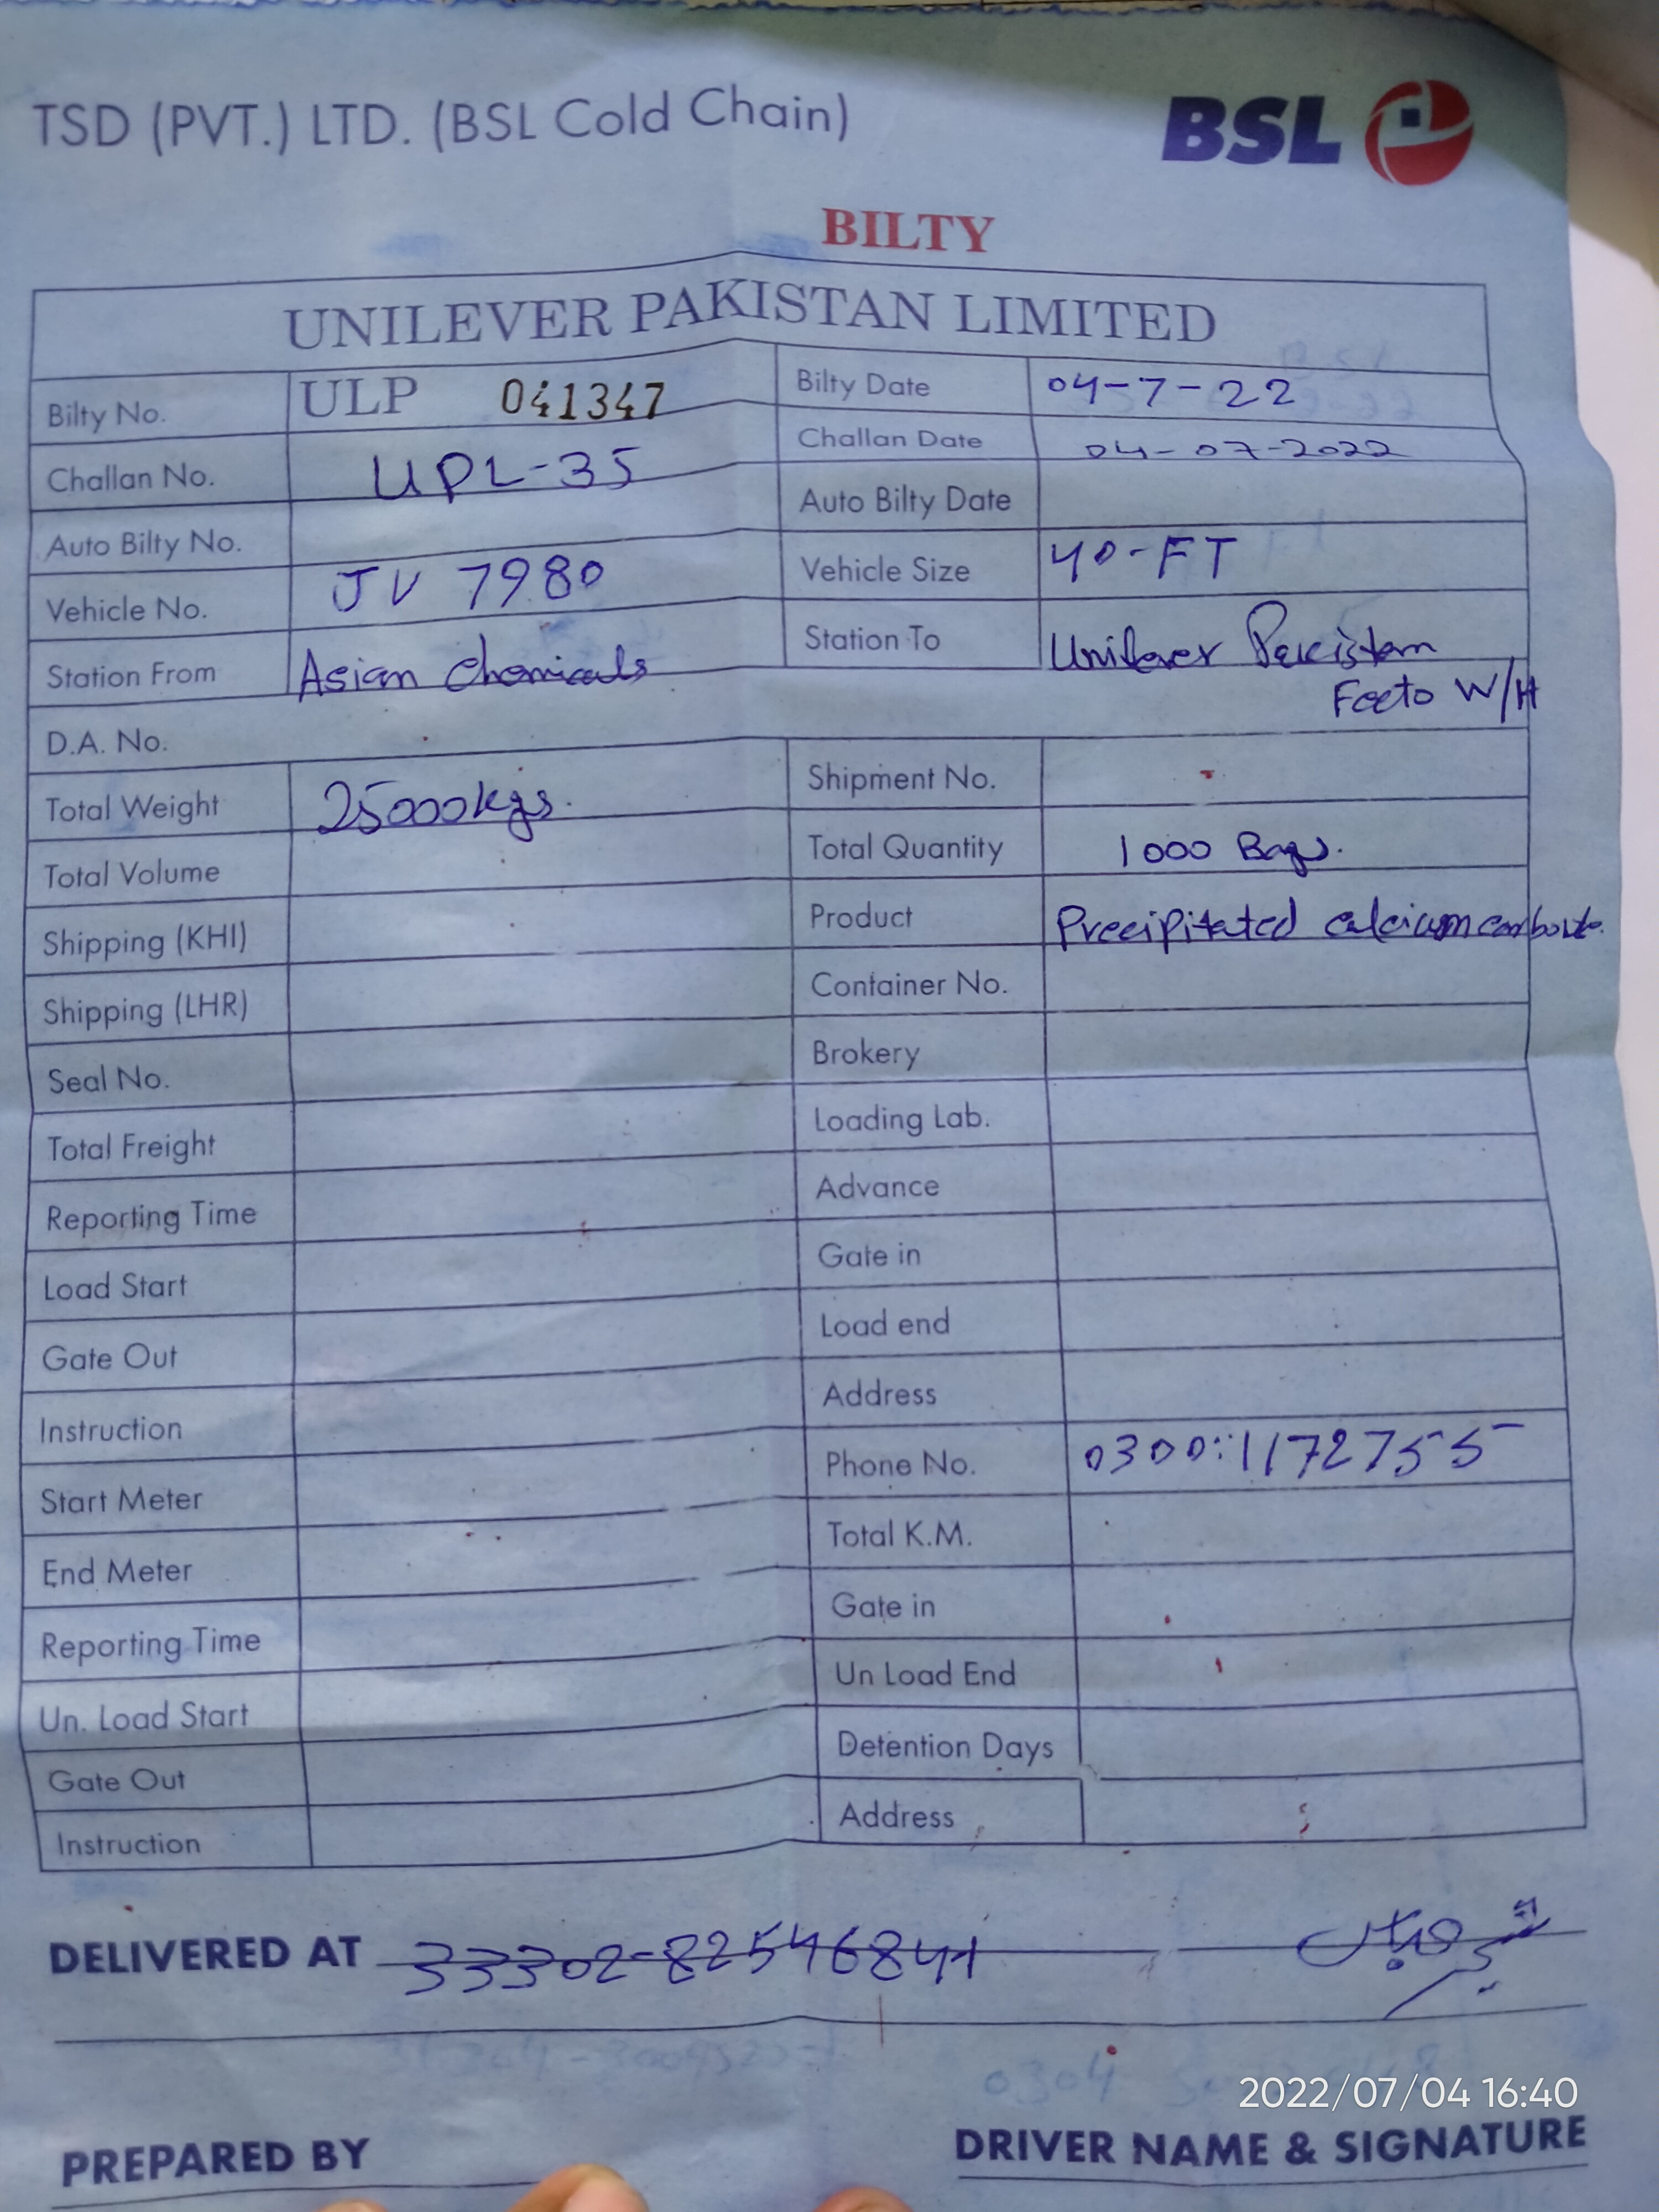 TSD (PVT.) LTD. (BSL Cold Chain)
BSL
BILTY
UNILEVER PAKISTAN LIMITED
Bilty No. ULP 041347 Bilty Date 04-7-22
Challan No. UPL-35 Challan Date 04-07-2022
Auto Bilty No. Auto Bilty Date
Vehicle No. JV 7980 Vehicle Size 40-FT
Station From Asian Chemicals Station To Unilever Pakistan
Fecto W/H
D.A. No.
Total Weight 25000kgs. Shipment No.
Total Volume Total Quantity 1000 Bags.
Shipping (KHI) Product Precipitated calcium carbonate.
Shipping (LHR) Container No.
Seal No. Brokery
Total Freight Loading Lab.
Reporting Time Advance
Load Start Gate in
Gate Out Load end
Instruction Address
Start Meter Phone No. 0300:1172755
End Meter Total K.M.
Reporting Time Gate in
Un. Load Start Un Load End
Gate Out Detention Days
Instruction Address
DELIVERED AT 33302-82546841
0304
2022/07/04 16:40
PREPARED BY DRIVER NAME & SIGNATURE